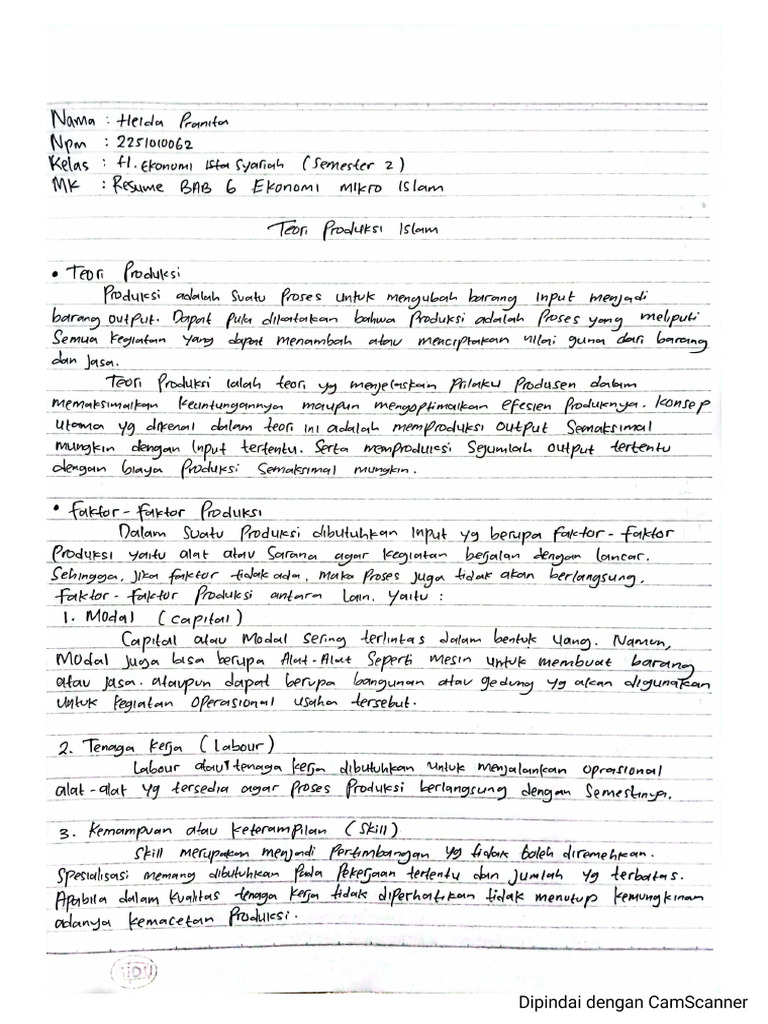 Nama : Helda Pranita
Npm : 2251010062
Kelas : H. Ekonomi Syariah (Semester 2)
MK : Resume BAB 6 Ekonomi Mikro Islam
Teori Produksi Islam
• Teori Produksi
Produksi adalah suatu Proses untuk mengubah barang Input menjadi
barang output. Dapat pula dikatakan bahwa Produksi adalah Proses yang meliputi
Semua kegiatan yang dapat menambah atau menciptakan nilai guna dari barang
dan Jasa.
Teori Produksi ialah teori yg menjelaskan Prilaku Produsen dalam
memaksimalkan keuntungannya maupun mengoptimalkan efesien Produknya. Konsep
Utama yg dikenal dalam teori ini adalah memproduksi output Semaksimal
mungkin dengan Input tertentu. Serta memproduksi Sejumlah output tertentu
dengan biaya Produksi Semaksimal mungkin.
• Faktor - Faktor Produksi
Dalam Suatu Produksi dibutuhkan Input yg berupa Faktor - Faktor
Produksi yaitu alat atau Sarana agar kegiatan berjalan dengan lancar.
Sehingga, Jika faktor tidak ada, maka Proses juga tidak akan berlangsung.
Faktor - Faktor Produksi antara lain, Yaitu :
1. Modal (capital)
Capital atau Modal sering terlintas dalam bentuk uang. Namun,
Modal Juga bisa berupa Alat-Alat Seperti mesin untuk membuat barang
atau Jasa. ataupun dapat berupa bangunan atau gedung yg akan digunakan
untuk kegiatan operasional usaha tersebut.
2. Tenaga Kerja (Labour)
Labour atau tenaga kerja dibutuhkan untuk menjalankan oprasional
alat-alat yg tersedia agar Proses Produksi berlangsung dengan Semestinya.
3. Kemampuan atau Keterampilan (Skill)
Skill merupakan menjadi Pertimbangan yg tidak boleh diremehkan.
Spesialisasi memang dibutuhkan Pada Pekerjaan tertentu dan Jumlah yg terbatas.
Apabila dalam kualitas tenaga kerja tidak diperhatikan tidak menutup kemungkinan
adanya kemacetan Produksi.
Dipindai dengan CamScanner